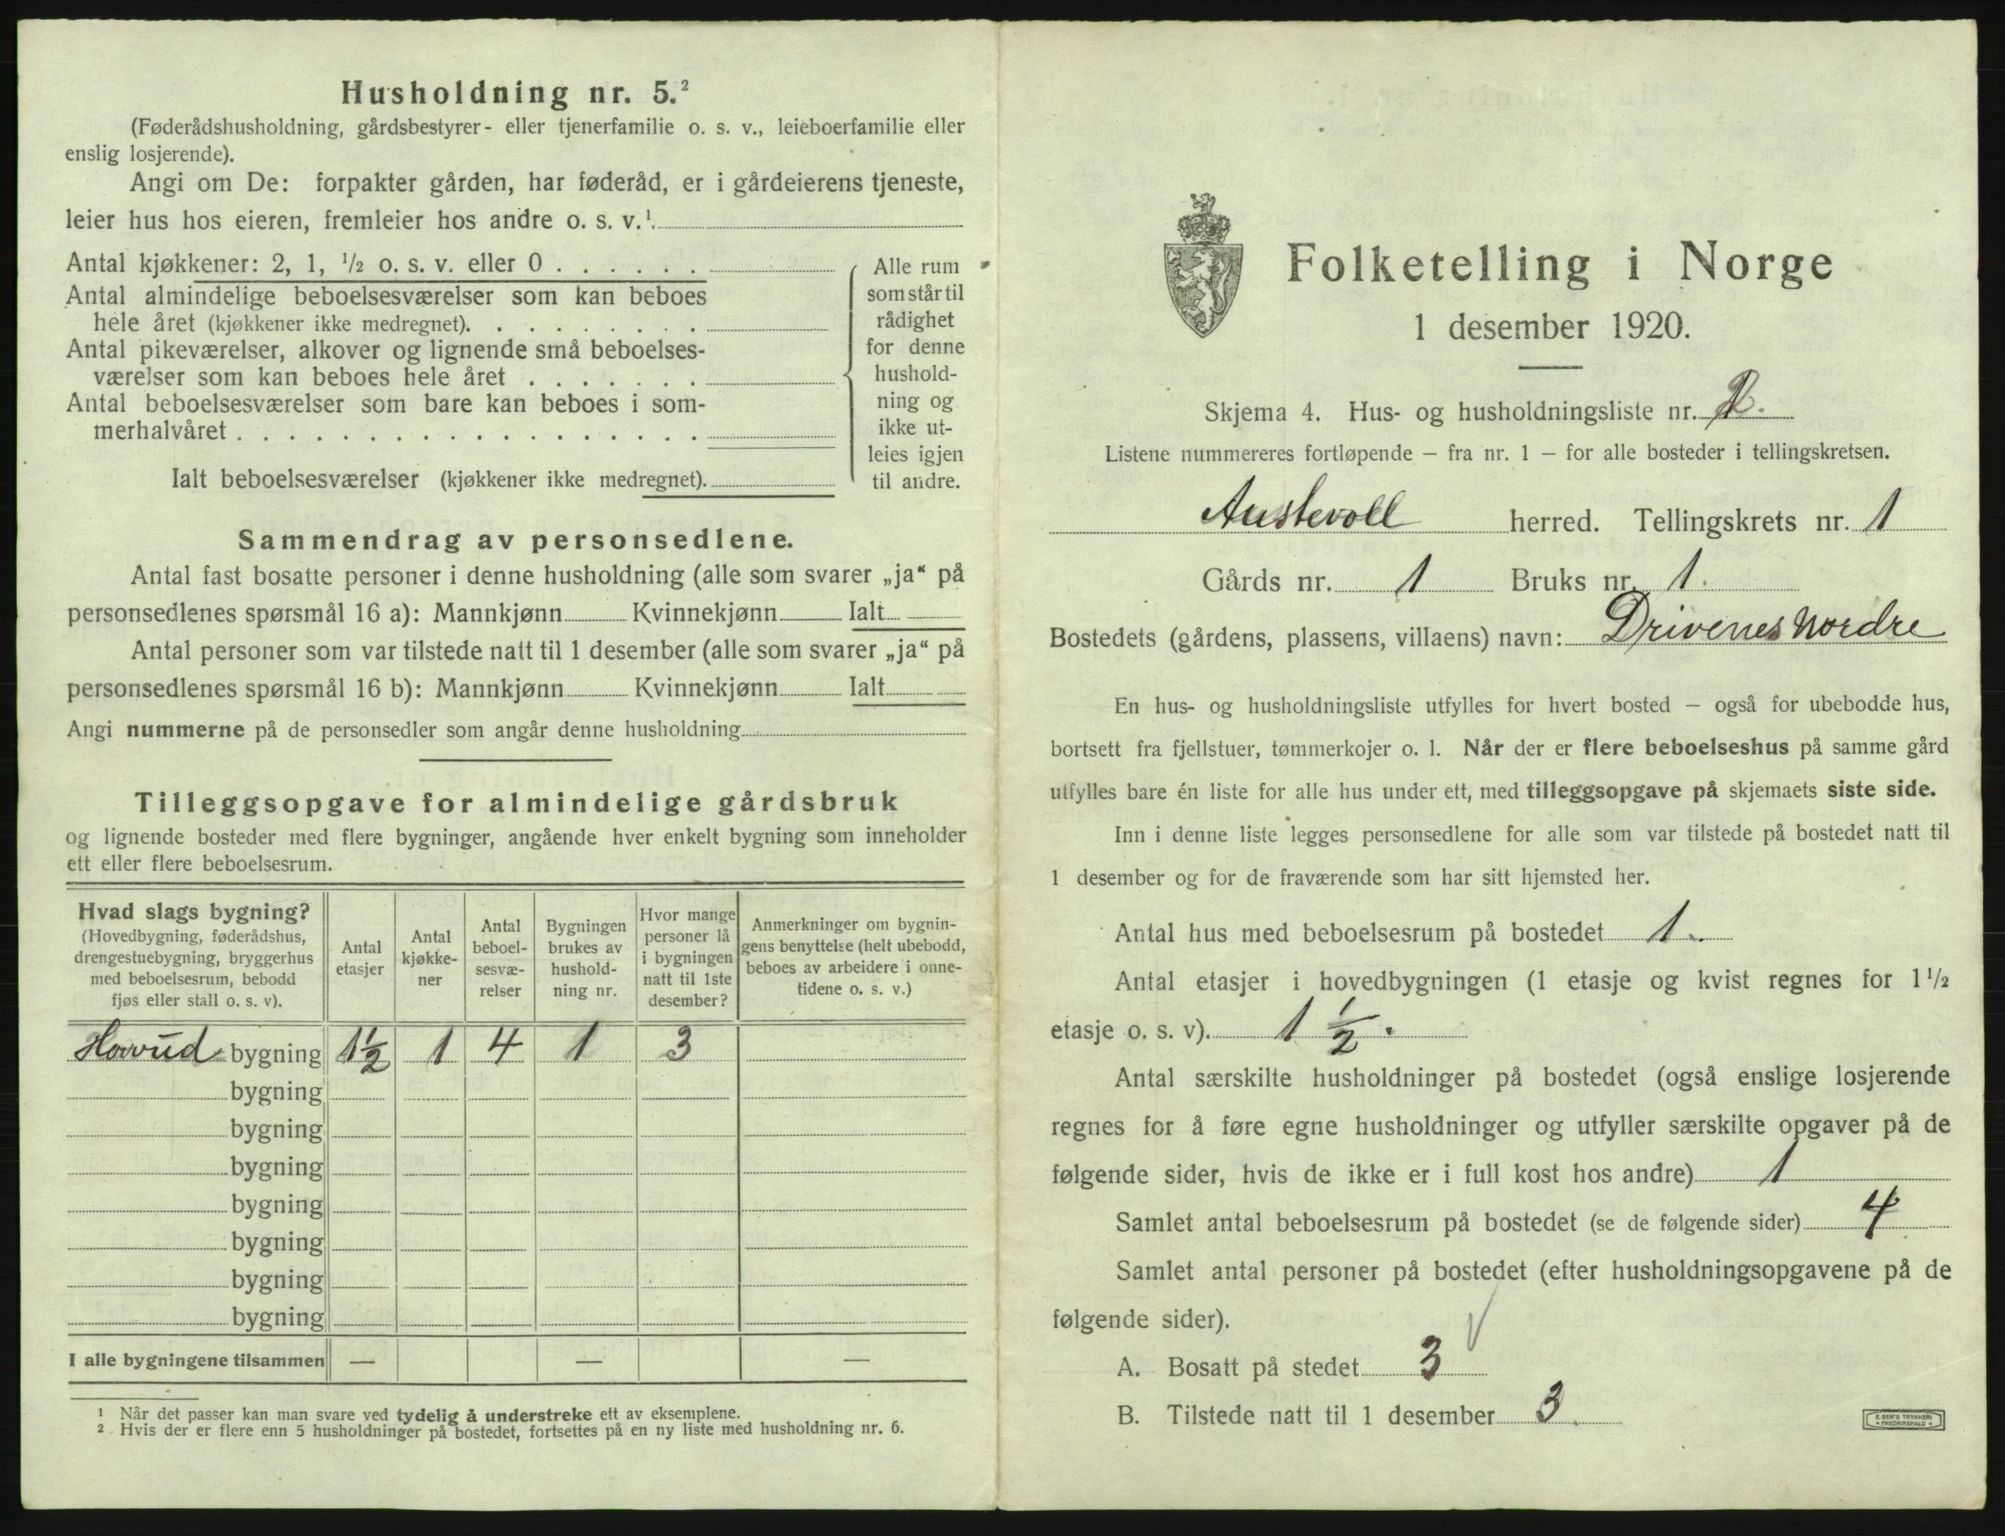 Husholdning nr. 5.²
(Føderådshusholdning, gårdsbestyrer- eller tjenerfamilie o. s. v., leieboerfamilie eller
enslig losjerende).
Angi om De: forpakter gården, har føderåd, er i gårdeierens tjeneste,
leier hus hos eieren, fremleier hos andre o. s. v.¹.
Antal kjøkkener: 2, 1, ½ o. s. v. eller 0 . . . . . .
Antal almindelige beboelsesværelser som kan beboes
hele året (kjøkkener ikke medregnet). . . . . . . . .
Antal pikeværelser, alkover og lignende små beboelses-
værelser som kan beboes hele året . . . . . . .
Antal beboelsesværelser som bare kan beboes i som-
merhalvåret . . . . . . . . . . . . . . . . .
Ialt beboelsesværelser (kjøkkener ikke medregnet).
Alle rum
som står til
rådighet
for denne
hushold-
ning og
ikke ut-
leies igjen
til andre.
Sammendrag av personsedlene.
Antal fast bosatte personer i denne husholdning (alle som svarer „ja“ på
personsedlenes spørsmål 16 a): Mannkjønn Kvinnekjønn Ialt
Antal personer som var tilstede natt til 1 desember (alle som svarer „ja“ på
personsedlenes spørsmål 16 b): Mannkjønn Kvinnekjønn Ialt
Angi nummerne på de personsedler som angår denne husholdning
Tilleggsopgave for almindelige gårdsbruk
og lignende bosteder med flere bygninger, angående hver enkelt bygning som inneholder
ett eller flere beboelsesrum.
Hvad slags bygning?
(Hovedbygning, føderådshus,
drengestuebygning, bryggerhus
med beboelsesrum, bebodd
fjøs eller stall o. s. v).
Antal
etasjer
Antal
kjøkke-
ner
Antal
beboel-
sesvæ-
relser
Bygningen
brukes av
hushold-
ning nr.
Hvor mange
personer lå
i bygningen
natt til 1ste
desember?
Anmerkninger om bygnin-
gens benyttelse (helt ubebodd,
beboes av arbeidere i onne-
tidene o. s. v.)
Hovud bygning 1½ 1 4 1 3
bygning
bygning
bygning
bygning
bygning
bygning
bygning
I alle bygningene tilsammen — — —
¹ Når det passer kan man svare ved tydelig å understreke ett av eksemplene.
² Hvis der er flere enn 5 husholdninger på bostedet, fortsettes på en ny liste med husholdning nr. 6.
Folketelling i Norge
1 desember 1920.
Skjema 4. Hus- og husholdningsliste nr.
Listene nummereres fortløpende – fra nr. 1 – for alle bosteder i tellingskretsen.
Austevoll herred. Tellingskrets nr. 1
Gårds nr. 1 Bruks nr. 1.
Bostedets (gårdens, plassens, villaens) navn: Drivenes Nordre
En hus- og husholdningsliste utfylles for hvert bosted – også for ubebodde hus,
bortsett fra fjellstuer, tømmerkojer o. l. Når der er flere beboelseshus på samme gård
utfylles bare én liste for alle hus under ett, med tilleggsopgave på skjemaets siste side.
Inn i denne liste legges personsedlene for alle som var tilstede på bostedet natt til
1 desember og for de fraværende som har sitt hjemsted her.
Antal hus med beboelsesrum på bostedet 1.
Antal etasjer i hovedbygningen (1 etasje og kvist regnes for 1½
etasje o. s. v). 1½.
Antal særskilte husholdninger på bostedet (også enslige losjerende
regnes for å føre egne husholdninger og utfyller særskilte opgaver på de
følgende sider, hvis de ikke er i full kost hos andre) 1
Samlet antal beboelsesrum på bostedet (se de følgende sider) 4
Samlet antal personer på bostedet (efter husholdningsopgavene på de
følgende sider).
A. Bosatt på stedet 3
B. Tilstede natt til 1 desember 3.